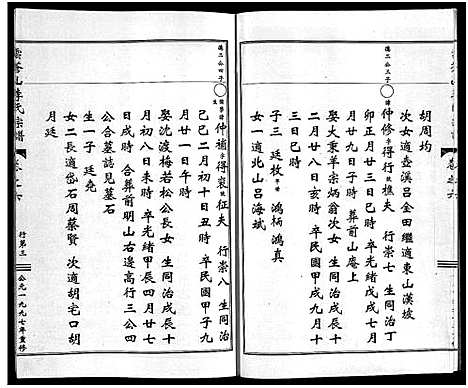 胡周均
次女適壺溪呂金田繼適東山漢坡
德二公三子
仲修字得行號樵夫 行崇七 生同治丁
卯正月廿三日巳時 卒光緒戊戌七月
廿九日子時 葬前山庵上
娶大東羊宗炳翁次女 生同治戊辰十
二月廿八日亥時 卒民國甲戌九月十
子三 廷枚 鴻柄 鴻真
女一 適北山呂海斌
德二公四子
仲補字得袞號征夫 行崇八 生同治
己巳二月初十日丑時 卒民國甲子九
月廿一日午時
娶沈渡梅若松公長女 生同治戊辰十
月初八日未時 卒光緒甲辰四月廿七
日戌時 合葬前明山右邊高行三公四
公合墓誌見墓石
生一子 廷堯
女二長適岱石周蔡賢 次適胡宅口胡
月廷
李氏宗譜
卷之六
行第三
公元一九九七年重修